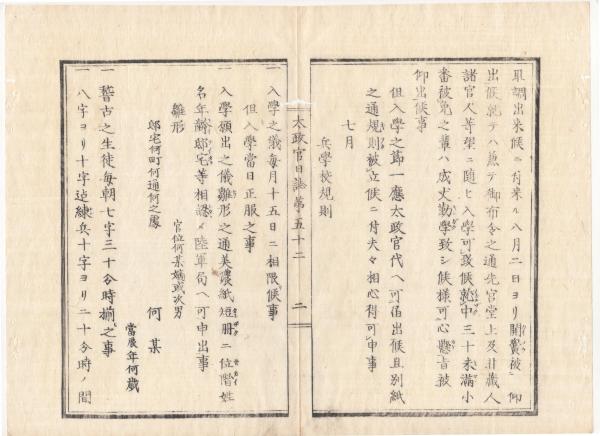 取調出来候ニ付来ル八月二日ヨリ開黌被 仰
出候就テハ兼テ御布令之通先官堂上及非蔵人
諸官人等架ニ随ヒ入学可致候就中三十未満小
番被免之輩ハ成丈勤学致シ候様可心懸旨被
仰出候事
但入学之節一應太政官代ヘ可届出候且別紙
之通規則被立候ニ付夫々相心得可申事
七月
兵學校規則
太政官日誌第五十二 二
一 入學之儀毎月十五日ニ相限候事
但入學當日正服之事
一 入學願出之儀雛形之通美濃紙短册ニ位階姓
名年齢邸宅等相認メ陸軍局ヘ可申出事
雛形
官位何某嫡或次男
邸宅何町何通何之處 何某
當辰年何歳
一 稽古之生徒毎朝七字三十分時揃之事
一 八字ヨリ十字迄練兵十字ヨリ二十分時ノ間